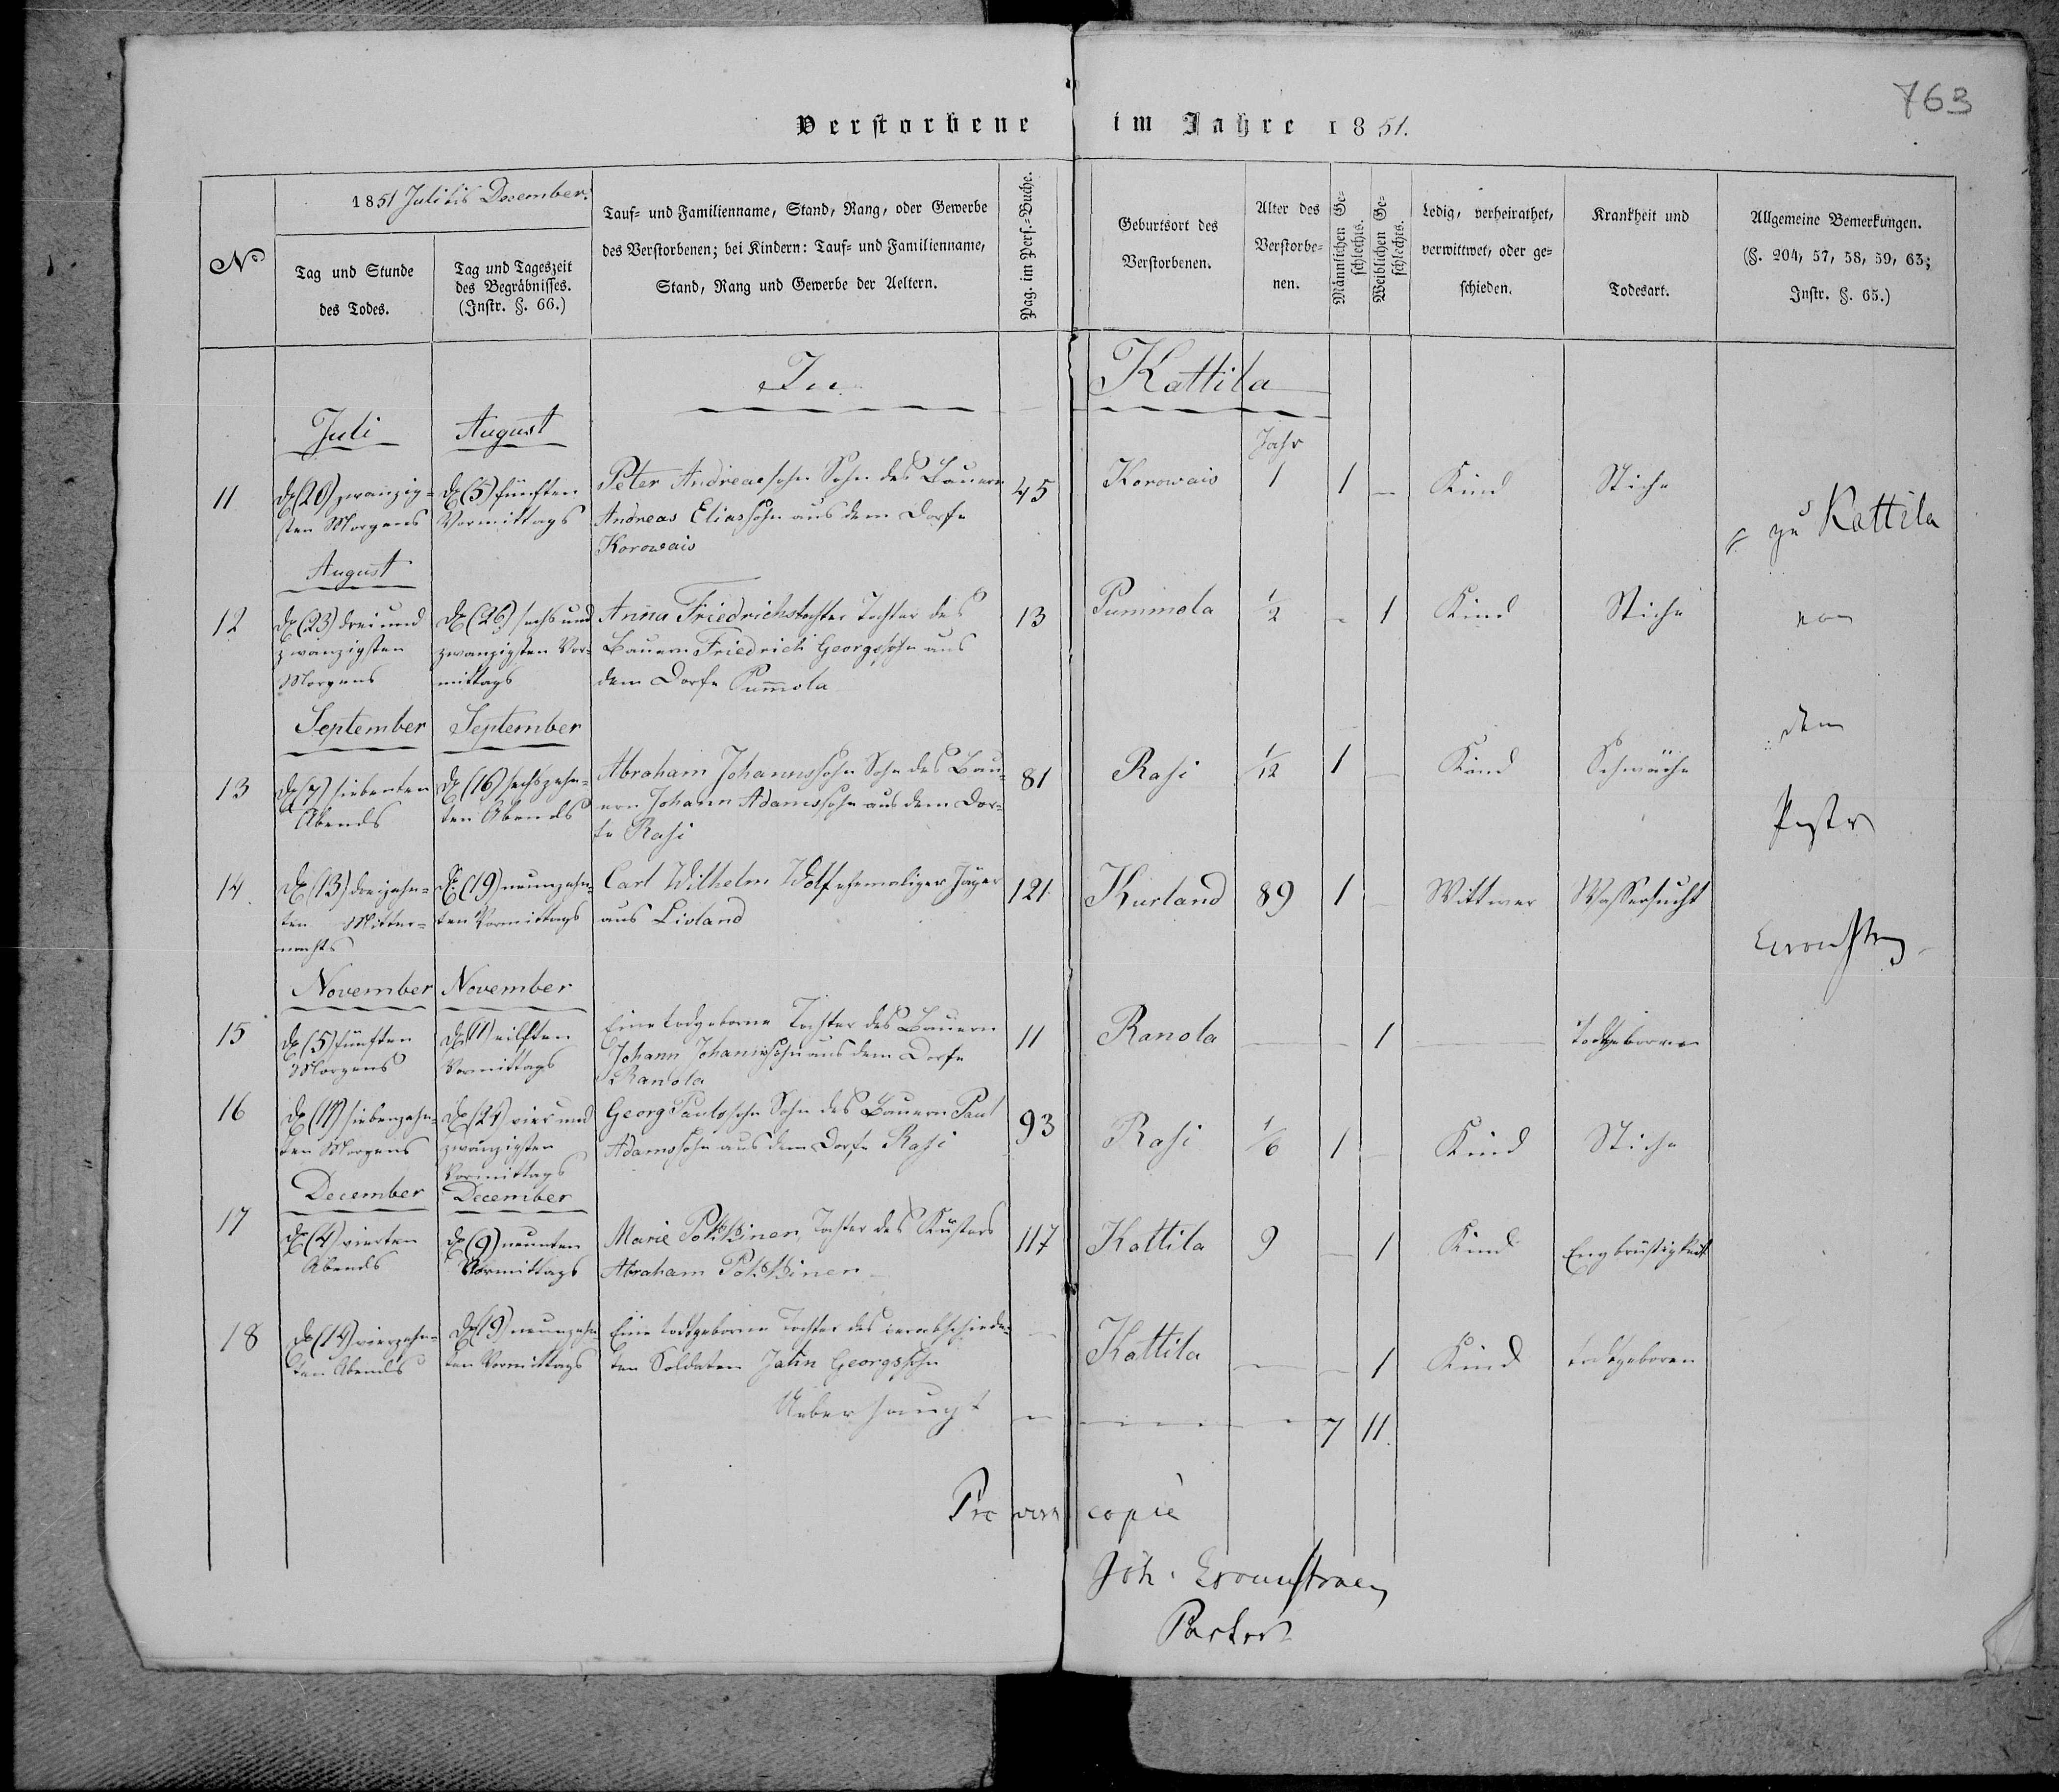 763
Verstorbene im Jahre 1851.
No
1851 Juli bis December.
Tag und Stunde
des Todes.
Tag und Tageszeit
des Begräbnisses.
(Instr. §. 66.)
Tauf= und Familienname, Stand, Rang, oder Gewerbe
des Verstorbenen; bei Kindern: Tauf= und Familienname,
Stand, Rang und Gewerbe der Aeltern.
Pag. im Pers.=Buche.
Geburtsort des
Verstorbenen.
Alter des
Verstorbe=
nen.
Männlichen Ge=
schlechts.
Weiblichen Ge=
schlechts.
Ledig, verheirathet,
verwittwet, oder ge=
schieden.
Krankheit und
Todesart.
Allgemeine Bemerkungen.
(§. 204, 57, 58, 59, 63;
Instr. §. 65.)
In Kattila
Juli August
Jahr
11
(20) zwanzig=
sten Morgens
(5) fünften
Vormittags
Peter Andreassohn Sohn des Bauern
Andreas Eliassohn aus dem Dorfe
Korowais
45 Korowais 1 1 – Kind Stiche
August
12
(23) drei und
zwanzigsten
Morgens
(26) sechs und
zwanzigsten Vor=
mittags
Anna Friedrichstochter Tochter des
Bauern Friedrich Georgssohn aus
dem Dorfe Pum̄ola
13 Pummola 1/2 – 1 Kind Stiche
September September
13
(7) siebenten
Abends
(16) sechszehn=
ten Abends
Abraham Johannssohn Sohn des Bau=
ern Johann Adamssohn aus dem Dor=
fe Rasi
81 Rasi 1/12 1 – Kind Schwäche
14.
(13) dreizehn=
ten Mitter=
nachts
(19) neunzehn=
ten Vormittags
Carl Wilhelm Wolf ehemaliger Jäger
aus Livland
121 Kurland 89 1 – Wittwer Wassersucht
November November
15
(5) fünften
Morgens
(11) eilften
Vormittags
Eine todgeborne Tochter des Bauern
Johann Johannssohn aus dem Dorfe
Ranola
11 Ranola – – 1 – Todtgeboren
16
(17) siebenzehn=
ten Morgens
(24) vier und
zwanzigsten
Vormittags
Georg Paulssohn Sohn des Bauern Paul
Adamssohn aus dem Dorfe Rasi
93 Rasi 1/6 1 – Kind Stiche
December December
17
(4) vierten
Abends
(9) neunten
Vormittags
Marie Tochter des Küsters
Abraham
117 Kattila 9 – 1 Kind Engbrüstigkeit
18
(14) vierzehn=
ten Abends
(19) neunzehn=
ten Vormittags
Eine todtgeborne Tochter des verabschiede=
ten Soldaten Jahn Georgssohn
– Kattila – – 1 Kind todtgeboren
Ueberhaupt – – – 7 11.
zu Kattila
von
dem
Pastor
Pro vera copia
Joh.
Pastor